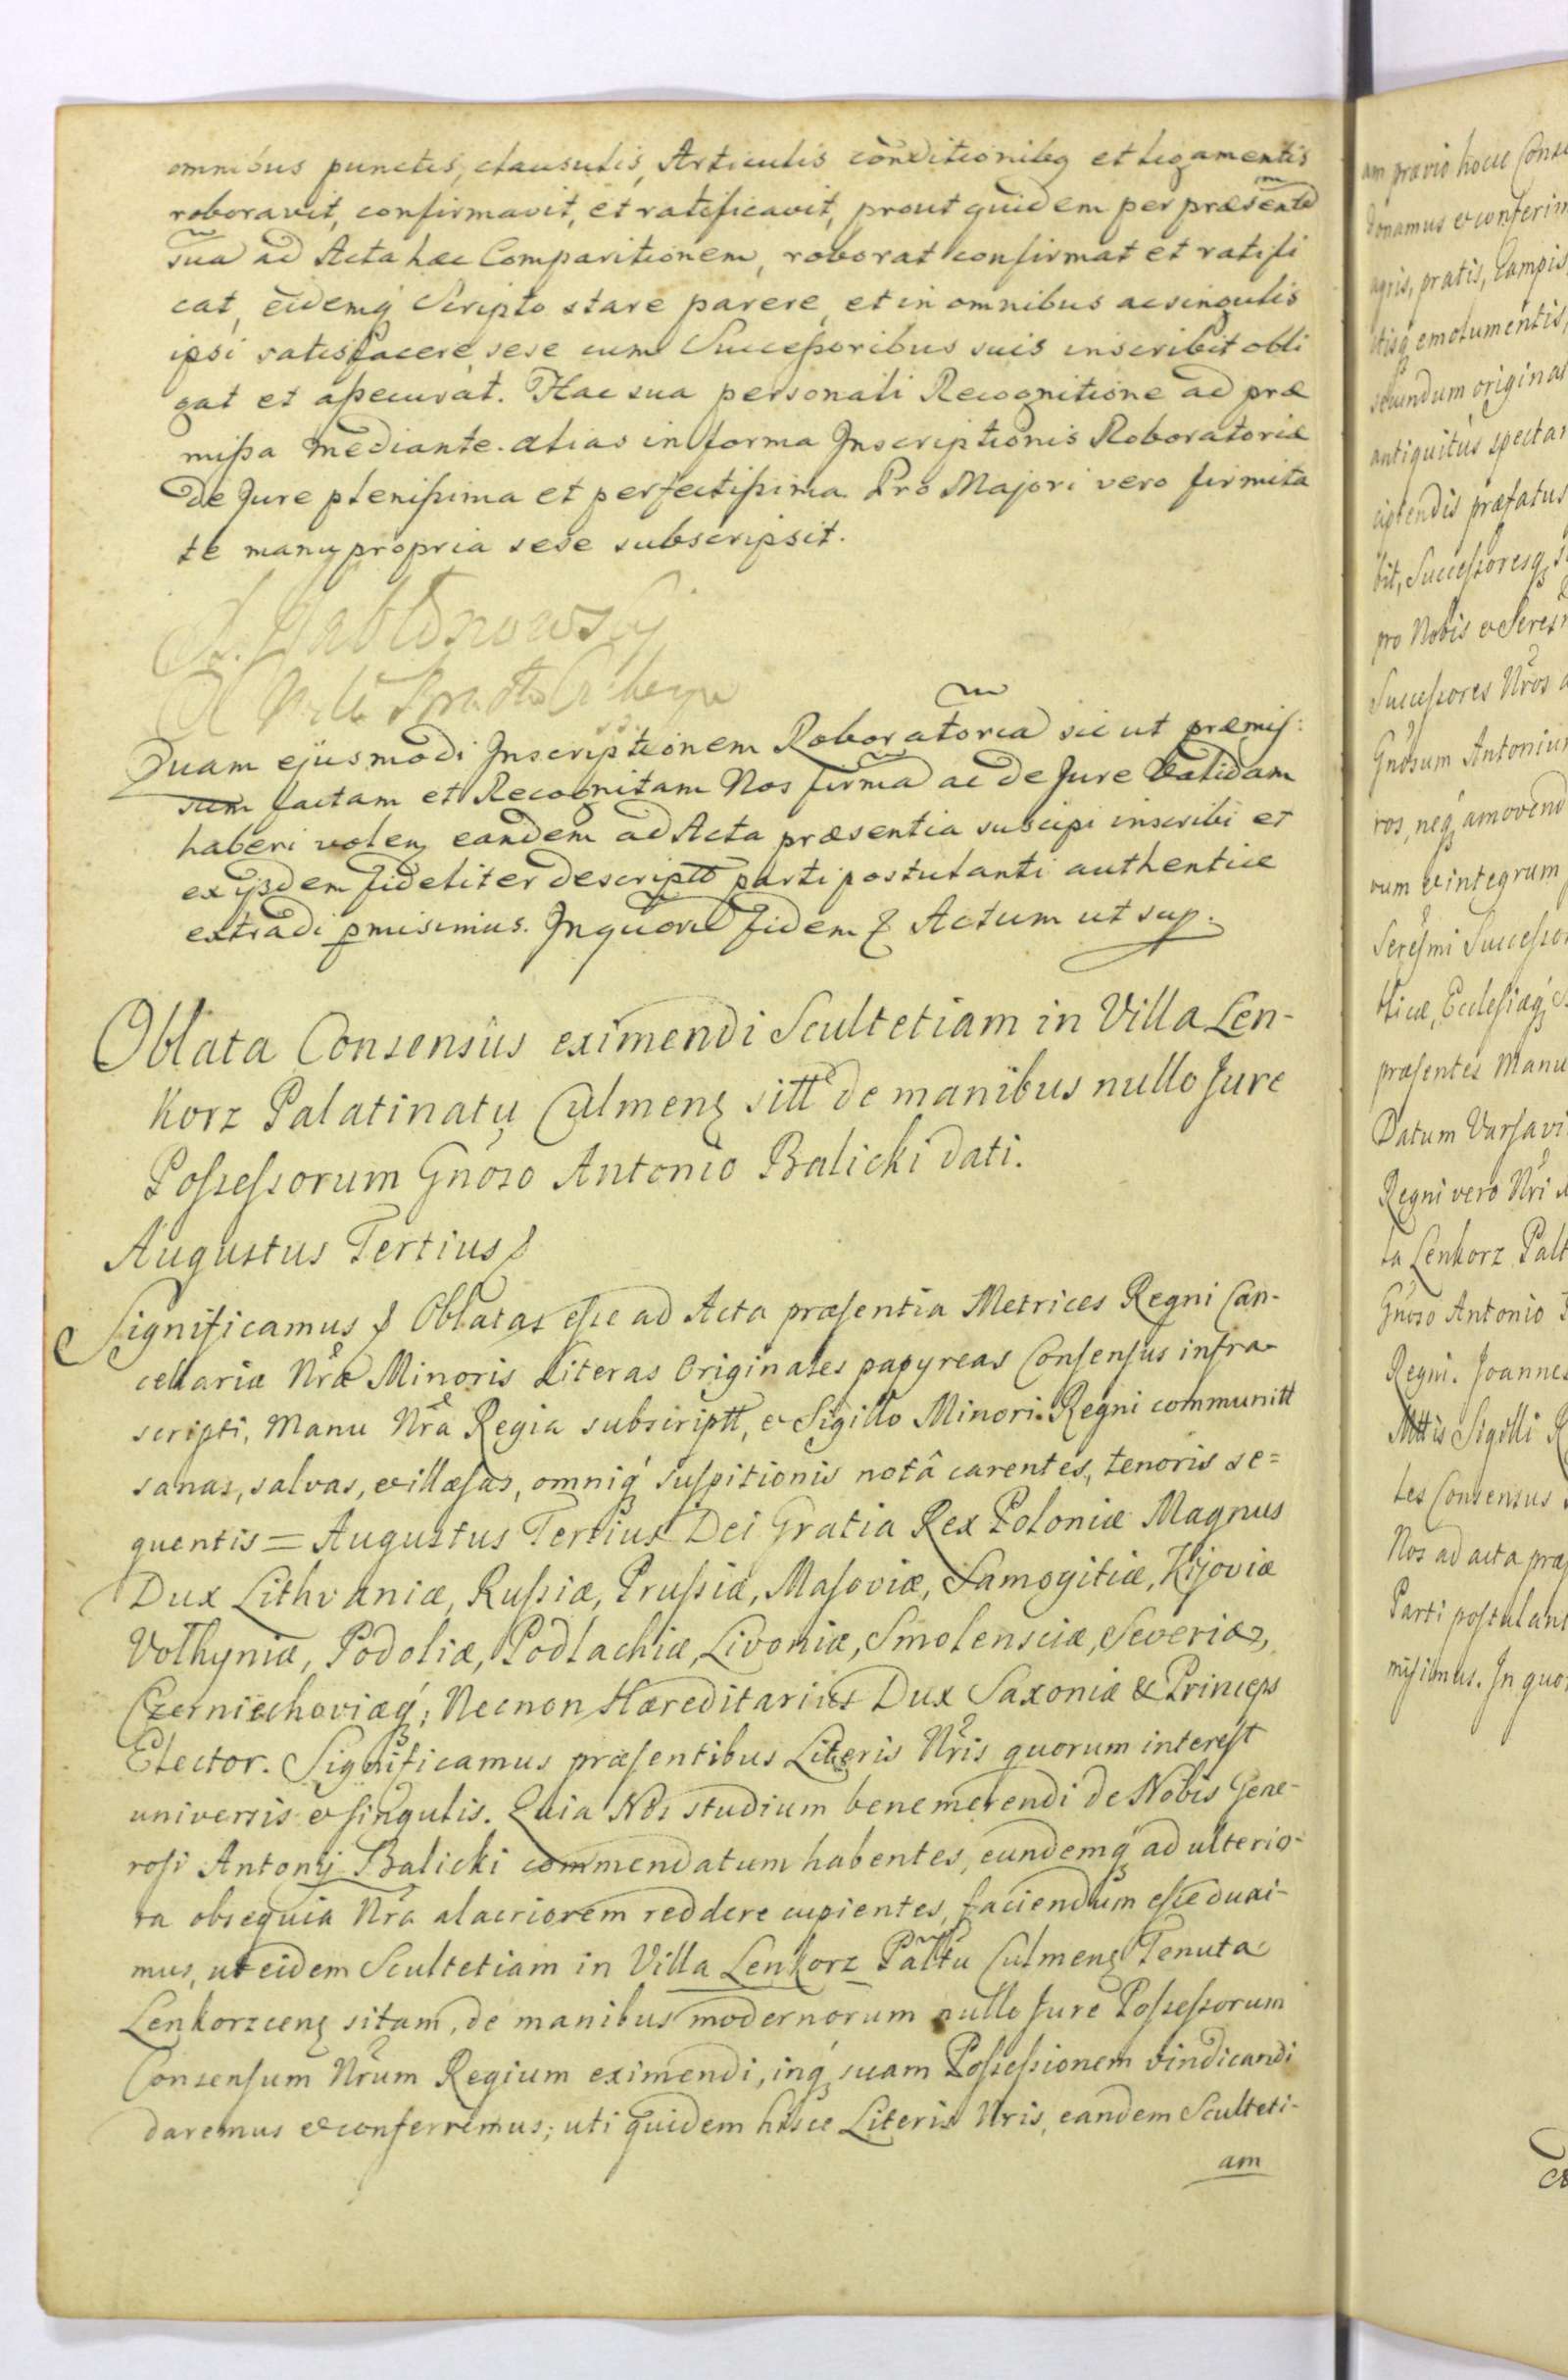 omnibus punctis, clausulis, Articulis conditionibq et ligamentis
roboravit, confirmavit, et ratificavit, prout quidem per præsentẽ
suã ad Acta hæc Comparitionem, roborat confirmat et ratifi
cat, eidemq Scripto stare parere, et in omnibus ac singulis
ipsi satisfacere, sese cum Successoribus suis inscribit obli
gat et assecurat. Hac sua personali Recognitione ad præ
missa mediante. alias in forma Inscriptionis Roboratoriæ
de Jure plenissima et perfectissima. Pro Majori vero firmita
te manu propria sese subscripsit.
Jabłonowsky
Quam ejusmodi Inscriptionem Roboratoriã sic ut præmis:
sum factam et Recognitam Nos firmã ac de Jure Validam
haberi volenz eandem ad Acta præsentia suscipi inscribi et
ex ijsdem fideliter descriptt parti postulanti authentice
extradi pmisimus. In quor fidem Actum ut sup.
Oblata Consensus eximendi Scultetiam in Villa Len-
korz Palatinatu Culmenz sitt de manibus nullo Jure
Possessorum Gnoso Antonio Balicki dati.
Augustus Tertius
Significamus Oblatas esse ad Acta præsentia Metrices Regni Can-
cellariæ Nræ Minoris Literas Originales papyreas Consensus infra
scripti, Manu Nra Regia subscriptt, & Sigillo Minori Regni communitt
sanas, salvas, & illæsas, omniq suspitionis notâ carentes, tenoris se=
quentis = Augustus Tertius Dei Gratia Rex Poloniæ Magnus
Dux Lithvaniæ, Russiæ, Prussiæ, Masoviæ, Samogitiæ, Kijoviæ
Volhyniæ, Podoliæ, Podlachiæ, Livoniæ, Smolensciæ, Severiæ,
Czerniechoviæq; Necnon Hæreditarius Dux Saxoniæ & Princeps
Elector. Significamus præsentibus Literis Nris quorum interest
universis & singulis. Quia Nos studium benemerendi de Nobis Gene-
rosi Antonij Balicki commendatum habentes, eundemq ad ulterio-
ra obsequia Nra alacriorem reddere cupientes, faciendum esse duxi-
mus, ut eidem Scultetiam in Villa Lenkorz Palttu Culmenz Tenuta
Lenkorzcenz sitam, de manibus modernorum nullo Jure Possessorum
Consensum Nrum Regium eximendi, inq suam Possessionem vindicandi
daremus & conferremus; uti quidem hisce Literis Nris, eandem Sculteti-
am
am prævio hocce Conse
donamus & conferim
agris, pratis, Campis
emolumentis,
secundum origina
antiquitùs spectan
præfatus
bit, Successoresq
pro Nobis & Seresn
Successores Nros
Gnosum Antoniu
ros, neq amovend
vum & integrum
Seresmi Successo
blicæ, Ecclesiæq
præsentes Manu
Datum Varsavi
Regni vero Nri
la Lenkorz Palt
Gnoso Antonio
Regni. Joannes
Sigilli
tes Consensus
Nos ad acta præ
Parti postulant
misimus. In quor